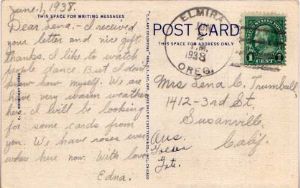 June 1, 1938.
THIS SPACE FOR WRITING MESSAGES
Dear Lena, - I received
your letter and nice gift
thanks. I like to watch
people dance. But I don't
know how myself. We are
having very warm weather
here. I will be looking
for some cards from
you. We have roses
here now. With love
Edna.
POST CARD
ELMIRA
1938
OREG.
1 CENT 1
Mrs Lena C. Trumbull,
1412-3rd St.
Susanville,
Calif.
Ans.